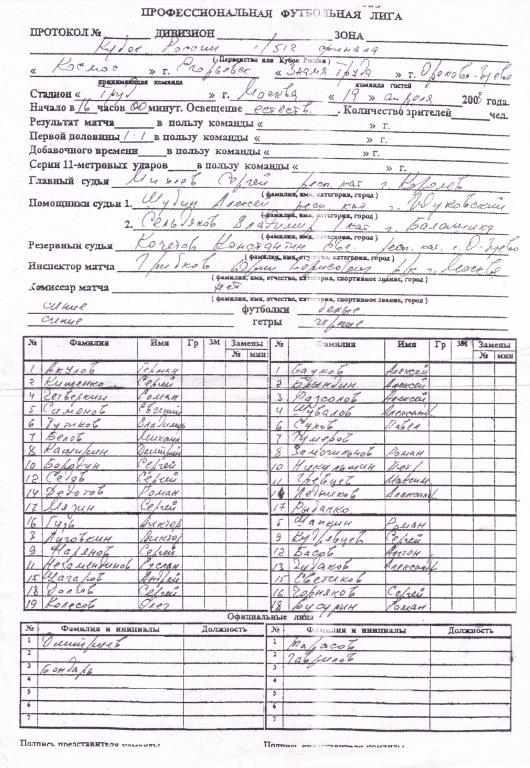 ПРОФЕССИОНАЛЬНАЯ ФУТБОЛЬНАЯ ЛИГА
ПРОТОКОЛ № ДИВИЗИОН ЗОНА
Кубок России 1/512 финала
(Первенство или Кубок России)
« Космос » г. Егорьевск « Знамя Труда » г. Орехово-Зуево
принимающая команда команда гостей
Стадион « Труд » г. Москва « 19 » апреля 200 года.
Начало в 16 часов 00 минут. Освещение естеств. . Количество зрителей чел.
Результат матча в пользу команды « » г.
Первой половины 1:1 в пользу команды « » г.
Добавочного времени в пользу команды « » г.
Серии 11-метровых ударов в пользу команды « » г.
Главный судья Сергей респ. кат г. Королев
(фамилия, имя, категория, город)
Помощники судьи 1. Шубин Алексей респ кат г. Жуковский
(фамилия, имя, категория, город)
2. Сельдяков Владимир 1 кат г. Балашиха
(фамилия, имя, категория, город)
Резервный судья Кочетов Константин респ. кат. г. О-Зуево
(фамилия, имя, отчество, категория, город)
Инспектор матча Грибков Борисович г. Москва
(фамилия, имя, отчество, категория, спортивное звание, город)
Комиссар матча нет
(фамилия, имя, отчество, категория, спортивное звание, город)
синие футболки белые
синие гетры черные
№ Фамилия Имя Гр ЗМ Замены № мин № Фамилия Имя Гр ЗМ Замены № мин
1 Акулов Герман 1 Бауков Алексей
2 Кищенко Сергей 2 Брындин Алексей
4 Четверкин Роман 3 Рассолов Алексей
5 Симонов Евгений 4 Шувалов Александр
6 Гутиков Владимир 6 Сухов Павел
7 Белов Михаил 7 Гумеров
8 Каширин Дмитрий 8 Замочильнов Роман
10 Бородин Сергей 10 Никульшин Петр
12 Седов Сергей 11 Гревцев Максим
14 Дедотов Роман 14 Александр
17 Мязин Сергей 17 Рыбалко
16 Гузь Виктор 5 Шапкин Роман
3 Луговкин Виктор 9 Кудрявцев Сергей
9 Марянов Сергей 12 Басов Антон
11 Незаментинов Руслан 13 Чудаков Александр
15 Шагаров Андрей 15 Светиков
18 Долгов Сергей 16 Хорняков Сергей
19 Колесов Олег 18 Бусурин Роман
Официальные лица
№ Фамилия и инициалы Должность № Фамилия и инициалы Должность
1 Дмитриев 1 Тарасов
2 2 Гаврилов
3 Бондарь 3
4 4
5 5
6 6
7 7
Подпись представителя команды Подпись представителя команды